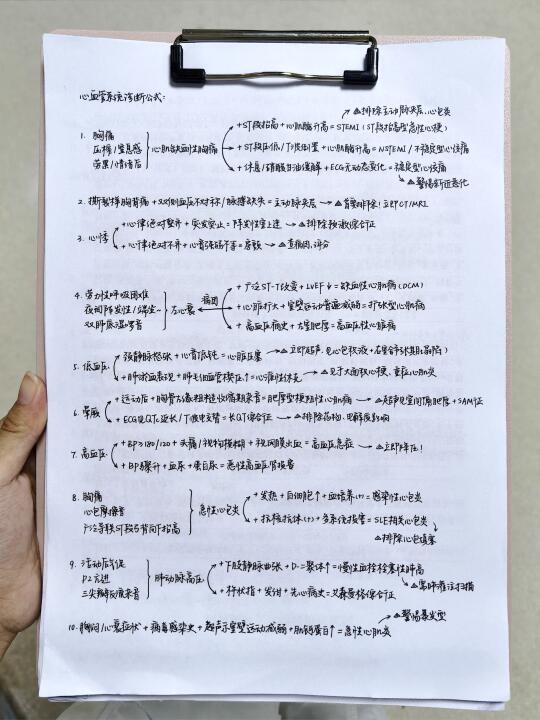 心血管系统诊断公式:
△排除主动脉夹层、心包炎
1. 胸痛
压榨/窒息感
劳累/情绪后
心肌缺血性胸痛
+ST段抬高+心肌酶升高=STEMI(ST段抬高型急性心梗)
+ST段压低/T波倒置+心肌酶升高=NSTEMI/不稳定型心绞痛
+休息/硝酸甘油缓解+ECG无动态变化=稳定型心绞痛
△警惕新近恶化
2. 撕裂样胸背痛+双侧血压不对称/脉搏缺失=主动脉夹层→△首要排除!立即CT/MRI
3. 心悸
+心律绝对整齐+突发突止=阵发性室上速→△排除预激综合征
+心律绝对不齐+心音强弱不等=房颤→△查病因、评分
4. 劳力性呼吸困难
夜间阵发性/端坐~
双肺底湿啰音
左心衰
病因
+广泛ST-T改变+LVEF↓=缺血性心肌病(DCM)
+心脏扩大+室壁运动普遍减弱=扩张型心肌病
+高血压病史+左室肥厚=高血压性心脏病
5. 低血压
+颈静脉怒张+心音低钝=心脏压塞→△立即超声,见心包积液+右室舒张期塌陷
+肺淤血表现+肺毛细血管楔压↑=心源性休克→△见于大面积心梗、重症心肌炎
6. 晕厥
+运动后+胸骨左缘粗糙收缩期杂音=肥厚型梗阻性心肌病→△超声见室间隔肥厚+SAM征
+ECG见QTc延长/T波电交替=长QT综合征→△排除药物、电解质影响
7. 高血压
+BP≥180/120+头痛/视物模糊+视网膜出血=高血压急症→△立即降压!
+BP骤升+血尿+蛋白尿=恶性高血压肾损害
8. 胸痛
心包摩擦音
广泛导联ST段弓背向下抬高
急性心包炎
+发热+白细胞↑+血培养(+)=感染性心包炎
+抗核抗体(+)+多系统损害=SLE相关心包炎
△排除心包填塞
9. 活动后气促
P2亢进
三尖瓣反流杂音
肺动脉高压
+下肢静脉曲张+D-二聚体↑=慢性血栓栓塞性肺高
△需肺灌注扫描
+杵状指+发绀+先心病史=艾森曼格综合征
△警惕暴发型
10. 胸闷/心衰症状+病毒感染史+超声示室壁运动减弱+肌钙蛋白↑=急性心肌炎